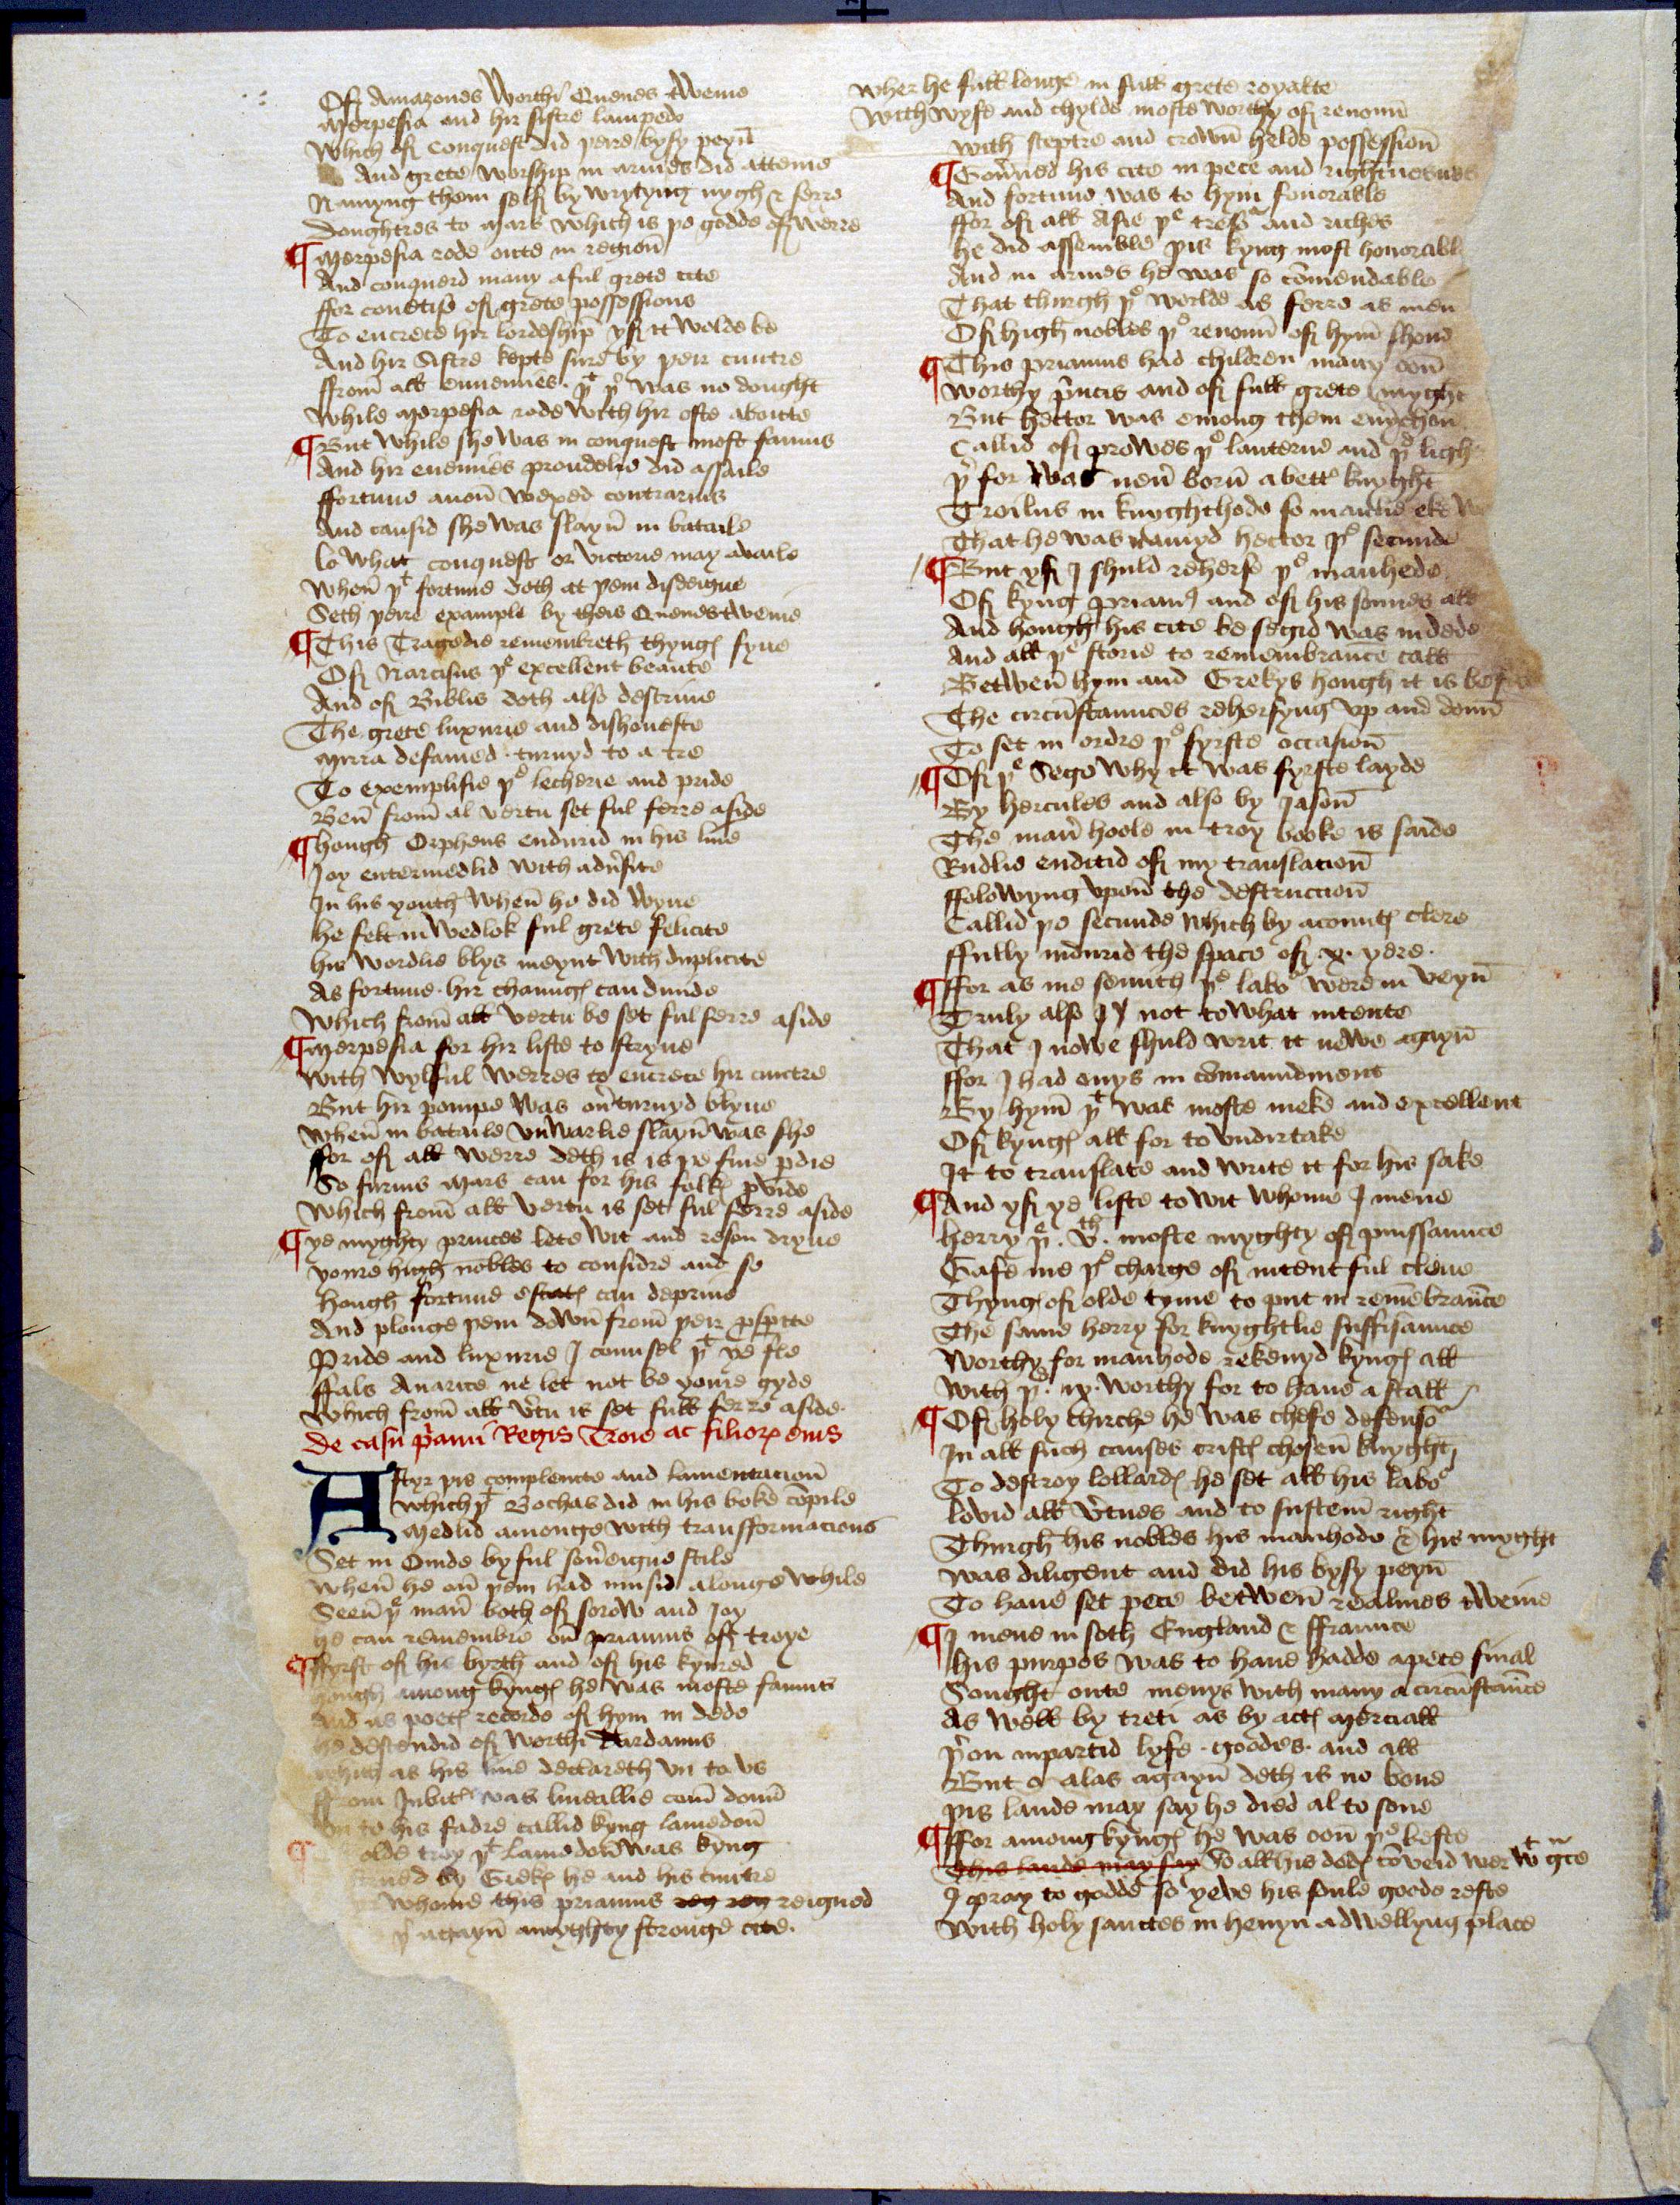 Off Amazones Worthi Quenes tweine
Merpesia and hir sistre lampedo
Which off Conquest did þeire bysy peyn̄
And grete Worship in armes did atteine
Namyng them self by wrytyng nygh & ferre
Doughtres to Mars which is þe godde of werre
¶ Merpesia rode oute in region̄
And conquerd many a ful grete cite
ffor couetise off grete possessions
To encrece hir lordeship yff it wolde be
And hir Sistre kepte sure by þeir cuntre
ffrom̄ all ennemies þt þr was no dought
While Merpesia rode with hir oste aboute
¶ But while she was in conquest most famus
And hir enemies proudelie did assaile
ffortune anon̄ wexed contrarius
And causid she was slayn̄ in bataile
lo what conquest or victorie may availe
When̄ þt fortune doth at þem disdeigne
Seth þeire example by theis Quenes tweine
¶ This Tragedie remembreth thynges fyue
Off Narcisus þe excellent beaute
And off Biblis doth also descriue
The grete luxurie and dishoneste
Mirra defamed turnyd to a tre
To exemplifie þe lecherie and pride
Ben̄ from̄ al vertu set ful ferre aside
¶ hough Orpheus endurid in his liue
Joy entermedlid with adu̾site
In his youth When̄ he did wyue
he felt in Wedlok ful grete felicite
his wordlie blys meynt with duplicite
As fortune hir chaunges can diuide
Which from̄ all vertu be set ful ferre aside
¶ Merpesia for hir liste to stryue
With wylful werres to encrece hir cuntre
But hir pompe was ou̾turnyd blyue
When̄ in bataile vnwarlie slayn̄ was she
ffor off all werre deth is is þe fine pdie
So furius Mars can for his folkes prvide
Which from̄ all vertu is set ful ferre aside
¶ ye myghty princes lete wit and reson dryue
youre high nobles to considre and se
hough fortune estates can depriue
And plonge þem down̄ from̄ þeir prsprite
Pride and luxurie I counsel þt ye fle
ffals Auarice ne let not be youre gyde
Which from̄ all v̾tu is set full ferre aside
De casu p̾ami Regis Troie ac filiorꝫ eius
Aftyr þis compleinte and lamentacion̄
Which þt Bochas did in his boke cōpile
Medlid amonge with transformacions
Set in Ouide by ful sou̾eigne stile
When̄ he on̄ þem had musid a longe while
Seen̄ þe man̾ both off sorow and Joy
he can remembre on̄ priamus off troye
¶ ffyrst off his byrth and off his kynred
hough among kynges he was moste famus
And as poetes recorde off hym in dede
he descendid off worthi Dardanus
which as his line declareth vn to vs
ffrom Jubiter was lineallie com̄ doun̄
vn to his fadre callid kyng lamedon̄
¶ olde troy þt lamedon̄ was kyng
by Grekes he and his cuntre
whome this priamus reg reg reigned
agayn̄ a myghty stronge cite
Wher he full longe in full grete royalte
With wyfe and chylde moste worthy off renoun̄
With sceptre and crown̄ helde possession̄
¶ Gou̾ned his cite in pece and rightwesnes
And fortune was to hym fauorable
ffor off all Asie þe treso̾ and riches
he did assemble þis kyng most honorable
And in armes he was so cōmendable
That thurgh þe worlde as ferre as men
Off high nobles þe renoun̄ off hym̄ shoud
¶ This priamus had children many oon̄
worthy p̾nces and off full grete myght
But hector was emong them euychon
Callid off prowes þe lanterne and þe light
þr for was neu̾ born̄ a bett̾ knyght
Troilus in knyghthode so manlie eke
That he was namyd hector þe secunde
¶ But yff I shuld reherse þe manhede
Off kyng priamꝰ and off his sonnes all
And hough his cite be segid was in dede
And all þe storie to remembrance call
Betwen̄ hym and Grekys hough it is
The circūstaunces rehersyng vp and doun̄
To set in ordre þe fyrste occasion̄
¶ Off þe Sege why it was fyrste layde
By hercules and also by Jason̄
The man̾ hoole in troy booke is saide
Rudlie enditid off my translacion̄
ffolowyng vpon̄ the destruccion̄
Callid þe secunde which by acountes clere
ffully indurid the space off .x. yere.
¶ ffor as me semith þe labo̾ were in veyn̄
Truly also I y not to what intente
That I nowe shuld writ it newe agayn̄
ffor I had onys in cōmaundment
By hym̄ þt was moste meke and excellent
Off kynges all for to vndirtake
It to translate and write it for his sake
¶ And yff ye liste to wit whome I mene
herry þe .v.th moste myghty off puissaunce
Gafe me þe charge off intent ful clene
Thynges off olde tyme to put in remēbrāūce
The same herry for knyghtlie suffisaunce
Worthy for manhode rekenyd kynges all
With þe .ix. worthy for to haue a stall
¶ Off holy chirche he was chefe defenso̾
In all such causes cristes chosen̄ knyght
To destroy lollardes he set all his labo̾
lovid all v̾tues and to sustein̄ right
Thurgh his nobles his manhode & his myght
Was diligent and did his bysy peyn̄
To haue set pece betwen̄ realmes tweine
¶ I mene in soth England & ffraunce
his purpos was to haue hadde a pece final
Sought oute menys with many a circūstāūce
As well by treti as by actes merciall
þr on inpartid lyfe . goodes . and all
But o alas agayn̄ deth is no bone
þis lande may say he died al to sone
¶ ffor among kynges he was oon̄ þe beste
This lande may say So all his dedes cōveid wer wt gce
I pray to godde so yeve his soule goode reste
With holy sanctes in henyn a dwellyng place